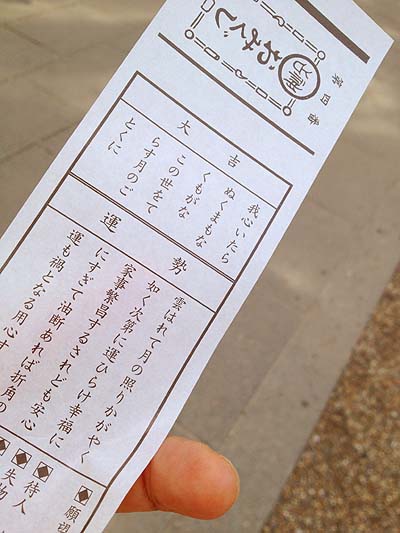 第四番
おみくじ
大吉
我心いたら
ぬくまもな
くもがな
この世をて
らす月のご
とくに
運勢
雲はれて月の照りかがやく
如く次第に運ひらけ幸福に
家事繁昌するされども安心
にすぎて油断あれば折角の
運も禍となる用心す
願望
待人
失物